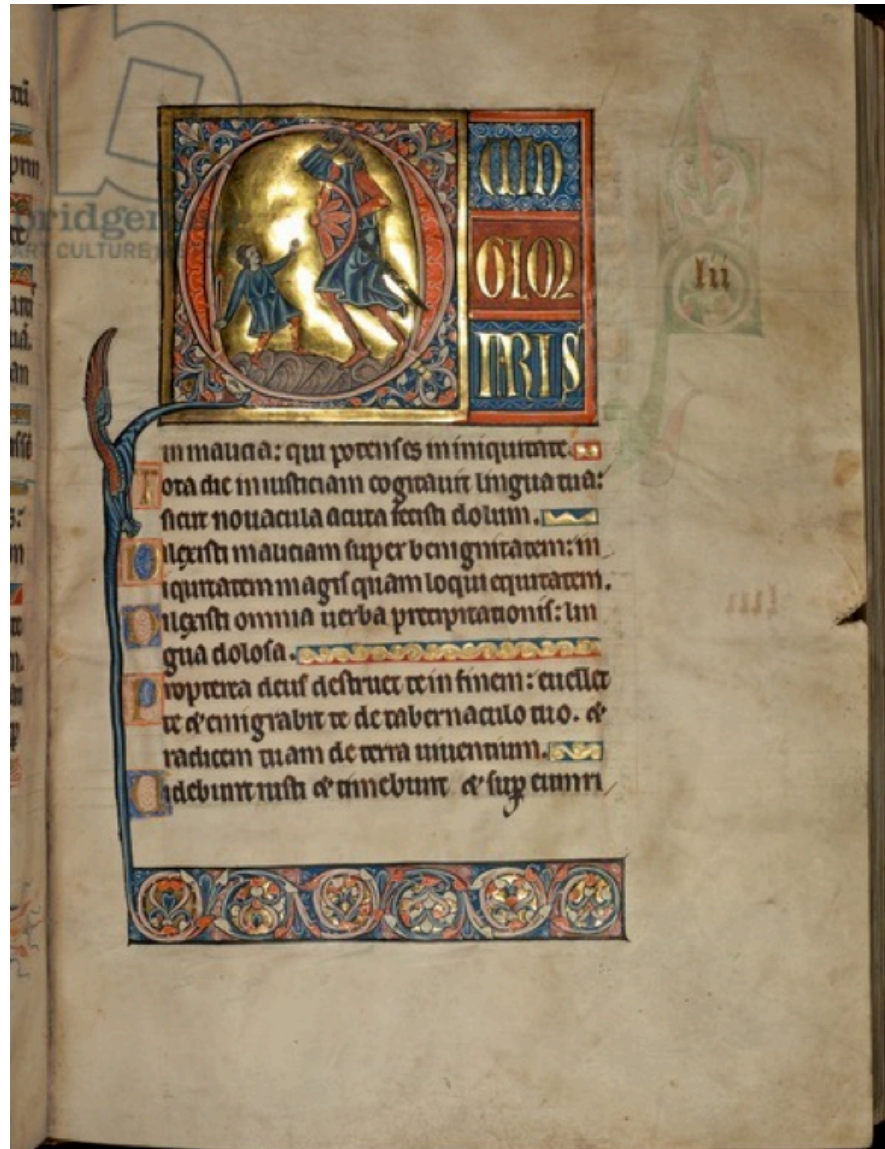 QUID
GLOR
IARIS
lii
in malicia: qui potens es in iniquitate.
Tota die iniusticiam cogitauit lingua tua:
sicut nouacula acuta fecisti dolum.
Dilexisti maliciam super benignitatem: in
iquitatem magis quam loqui equitatem.
Dilexisti omnia uerba precipitationis: lin
gua dolosa.
Propterea deus destruet te in finem: euellet
te & emigrabit te de tabernaculo tuo. &
radicem tuam de terra uiuentium.
Uidebunt iusti & timebunt & sup eum ri
ART CULTURE